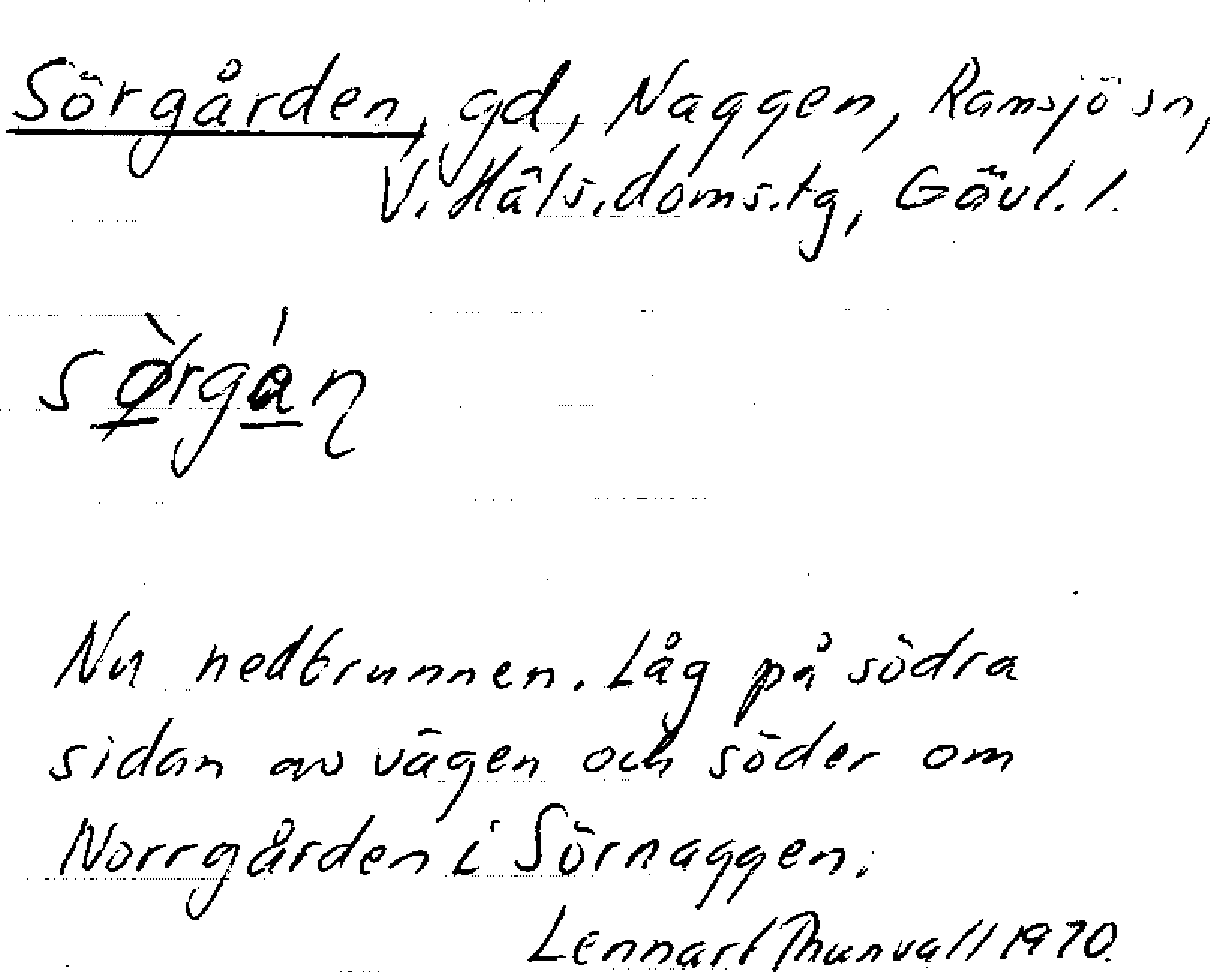 Sörgården, gd, Naggen, Ramsjö sn,
V. Häls. doms.tg, Gävl. l.
Nu nedbrunnen. Låg på södra
sidan av vägen och söder om
Norrgården i Sörnaggen.
Lennart Thunvall 1970.